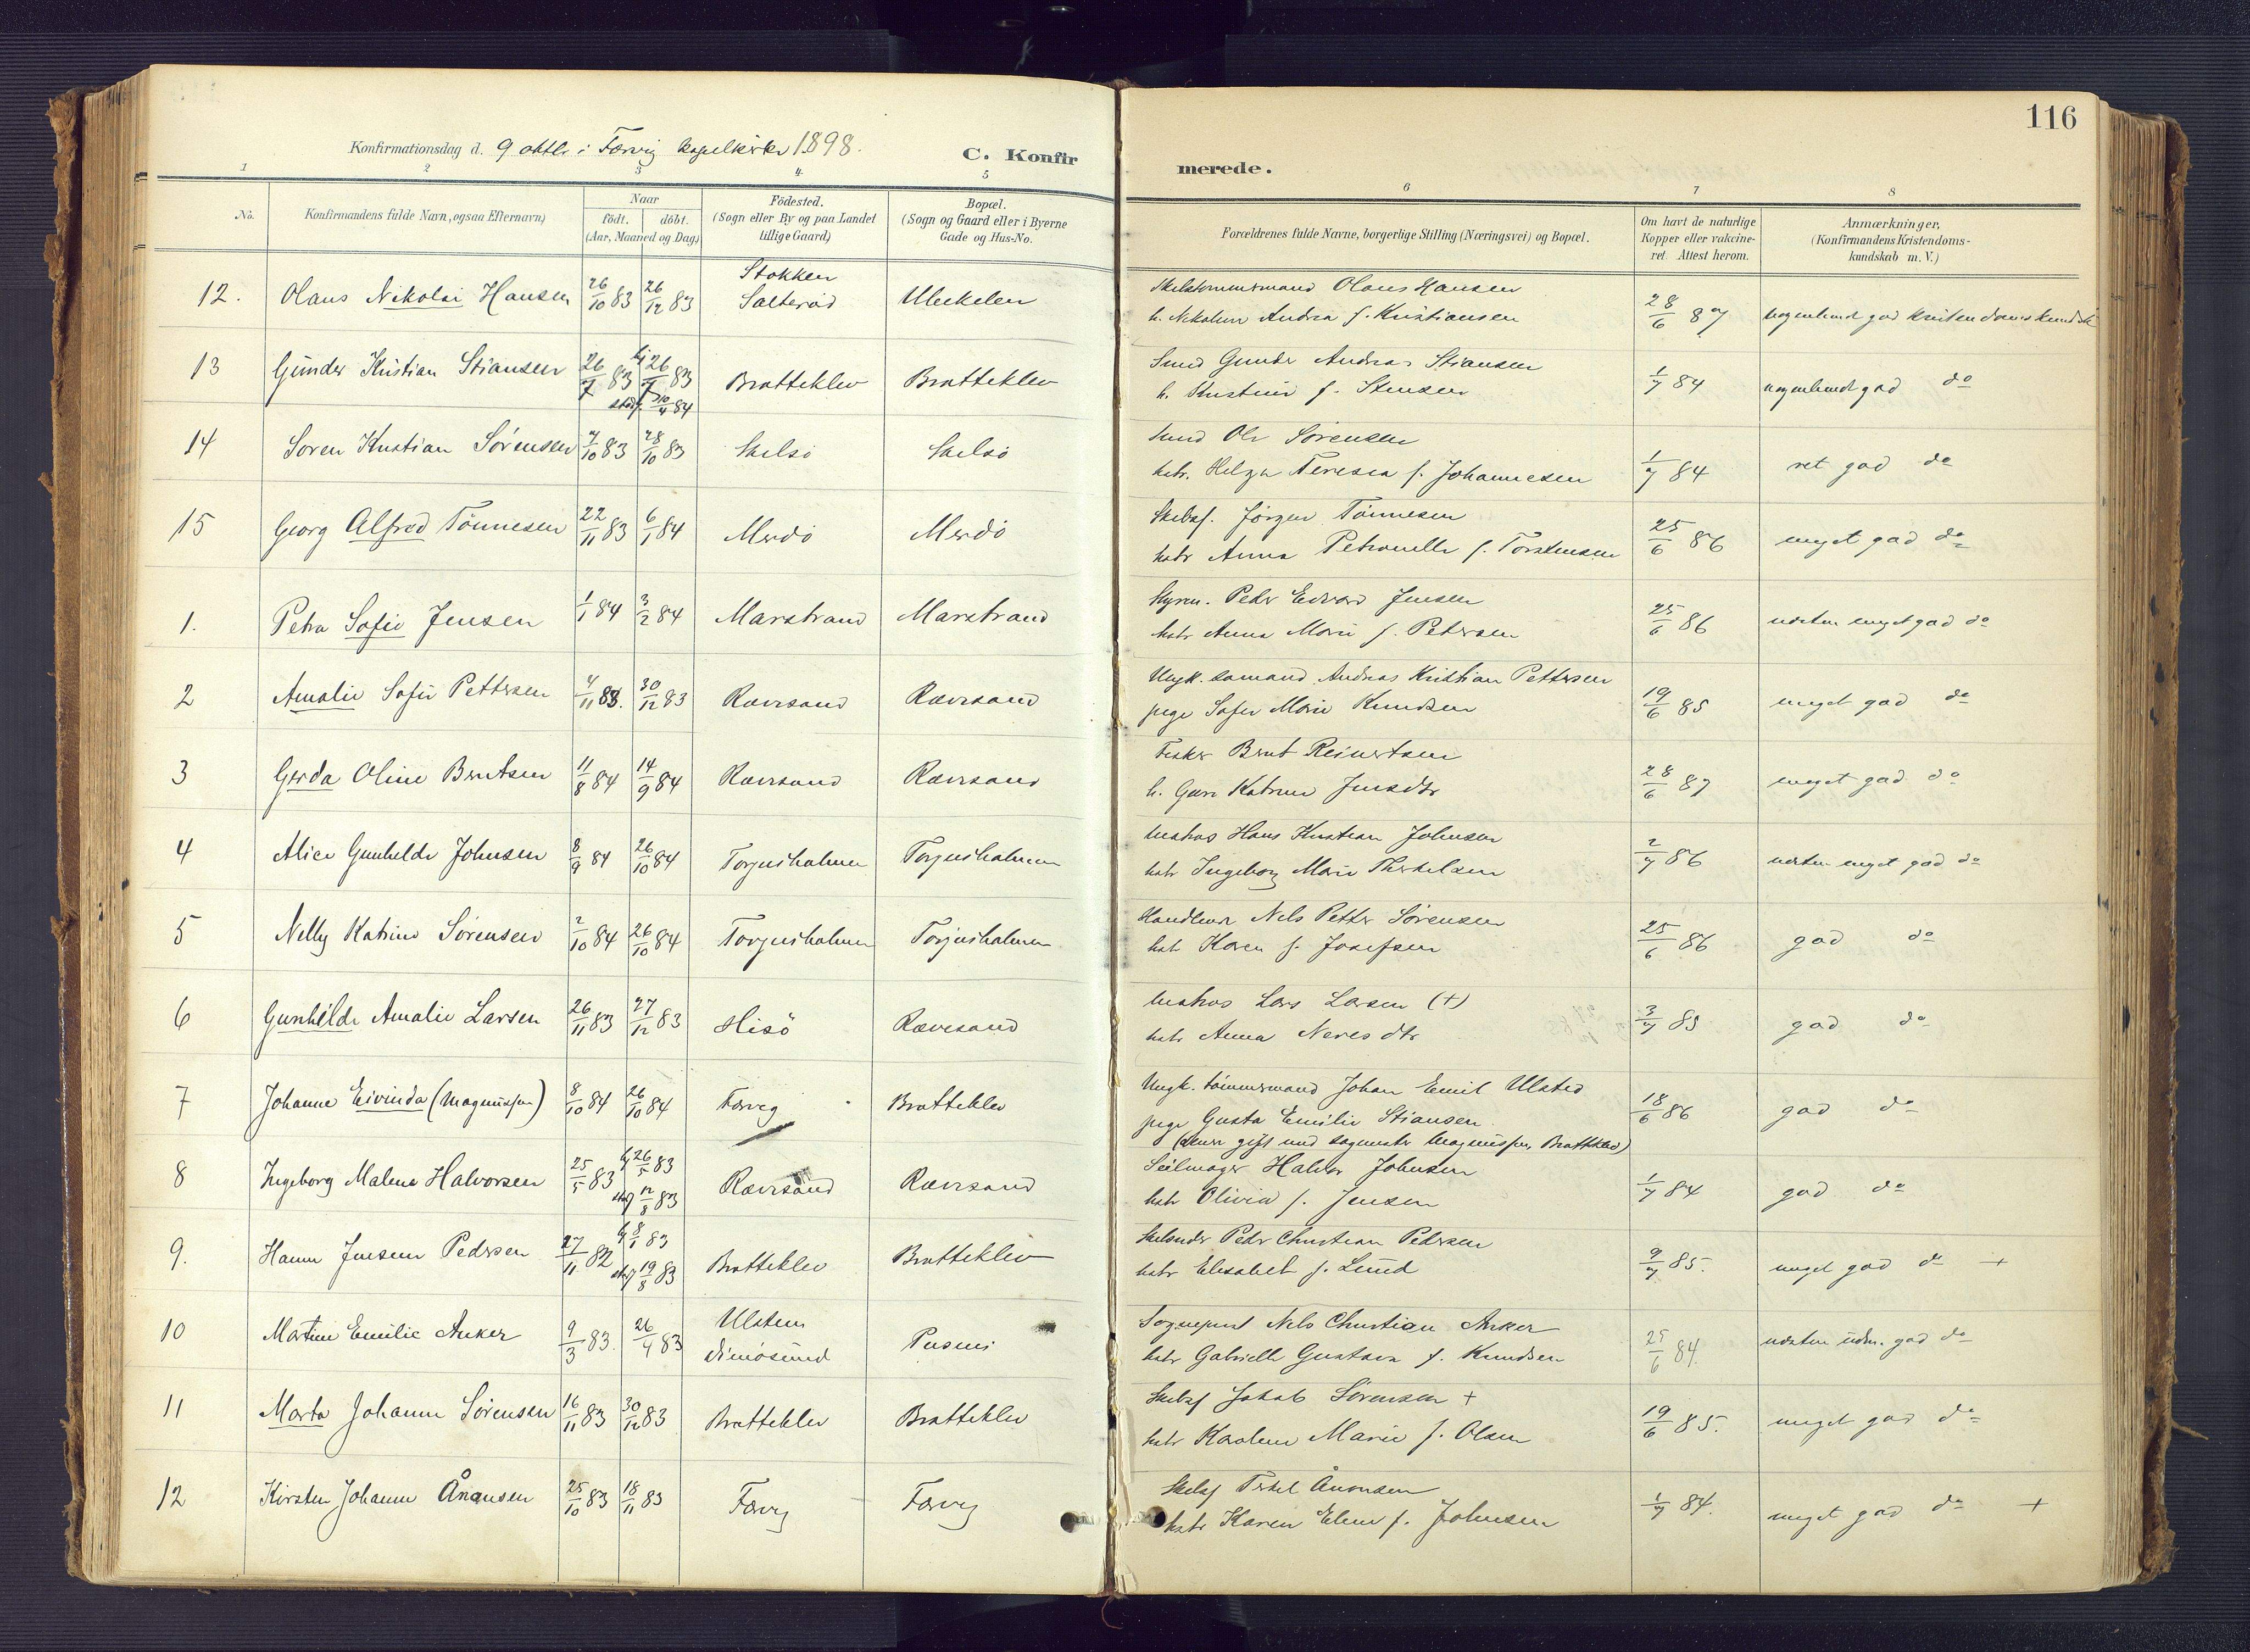 116
Konfirmationsdag d. 9 oktbr i Færvig kapelkirke 1898.
C. Konfirmerede.
1 2 3 4 5 6 7 8
No.
Konfirmandens fulde Navn, ogsaa Efternavn)
Naar
födt. döbt.
(Aar, Maaned og Dag)
Födested.
(Sogn eller By og paa Landet
tillige Gaard)
Bopæl.
(Sogn og Gaard eller i Byerne
Gade og Hus-No.
Forældrenes fulde Navne, borgerlige Stilling (Næringsvei) og Bopæl.
Om havt de naturlige
Kopper eller vakcine-
ret. Attest herom.
Anmærkninger,
(Konfirmandens Kristendoms-
kundskab m. V.)
12. Olaus Nikolai Hansen 26/10 83 26/12 83 Stokken Salteröd
Skibstömmermand Olaus Hansen
h. Nikoline Andrea f. Kristiansen 28/6 87 nogenlunde god kristendomskundsk
13 Gunder Kristian Stiansen 26/7 83 Bratteklev Bratteklev
Smed Gunder Andreas Stiansen
h. Kristine f. Stensen 1/7 84 nogenlunde god do
14 Soren Kristian Sörensen 7/10 83 28/10 83 Skilsö Skilsö
Smed Ole Sörensen
hstr. Helga Teresia f. Johannesen 1/7 84 ret god do
15 Georg Alfred Tönnesen 22/11 83 6/1 84 Merdö Merdö
Skibsf. Jörgen Tönnesen
hstr Anna Petronelle f. Torstensen 25/6 86 meget god do
1. Petra Sofie Jensen 1/1 84 3/2 84 Marstrand Marstrand
Styrm. Peder Edvard Jensen
hstr Anna Marie f. Petersen 25/6 86 næsten meget god do
2 Amalie Sofie Pettersen 4/11 83. 30/12 83 Rævesand Rævesand
Ungk. sömand Andreas Kristian Pettersen
pige Sofie Marie Knudsen 19/6 85 meget god do
3 Gerda Oline Berntsen 11/8 84 14/9 84 Rævesand Rævesand
Fisker Bernt Reinertsen
h. Katrine Jensdtr 28/6 87 meget god do
4 Alice Gunhilde Johnsen 8/9 84 26/10 84 Torjusholmen Torjusholmen
Matros Hans Kristian Johnsen
hstr Ingeborg Marie Therkelsen 2/7 86 næsten meget god do
5 Nelly Katrine Sörensen 2/10 84 26/10 84 Torjusholmen Torjusholmen
Handlende Nils Petter Sörensen
hst Karen f. Josefsen 25/6 86 god do
6 Gunhilde Amalie Larsen 26/11 83 27/12 83 Hisö Rævesand
Matros Lars Larsen (+)
hstr Anna Neresdtr 3/7 85 god do
7 Johanne Eivinda (Magnussen) 8/10 84 26/10 84 Færvig Bratteklev
Ungk. tömmermand Johan Emil Ulsted
pige Gusta Emilie Stiansen
(senere gift med Magnussen, Brattklev) 18/6 86 god do
8 Ingeborg Malene Halvorsen 25/5 83 26/5 83 12/8 83 Rævesand Rævesand
Seilmager Halvor Johnsen
hstr Olivia f. Jensen 1/7 84 god do
9. Hanne Jensine Pedersen 27/11 82 8/1 83 19/8 83 Bratteklev Brattekleiv
Skibsreder Peder Christian Pedersen
hstr Elisabet f. Lund 9/7 85. meget god do +
10 Martine Emilie Anker 9/3 83. 26/4 83 Ulsten Dimösund
Sognepræst Nils Christian Anker
hstr Gabrielle Gustava f. Knudsen 25/6 84. næsten udm. god do
11 Marta Johanne Sörensen 16/11 83 30/12 83 Bratteklev Brattekler
Skibsf Jakob Sörensen +
hstr Karoline Marie f. Olsen 19/6 85. meget god do
12 Kirsten Johanne Ånansen 25/10 83 18/11 83 Færvig Færvig
Skibsf Terkel Ånonsen
hstr Karen Elene f. Johnsen 1/7 84. meget god do +